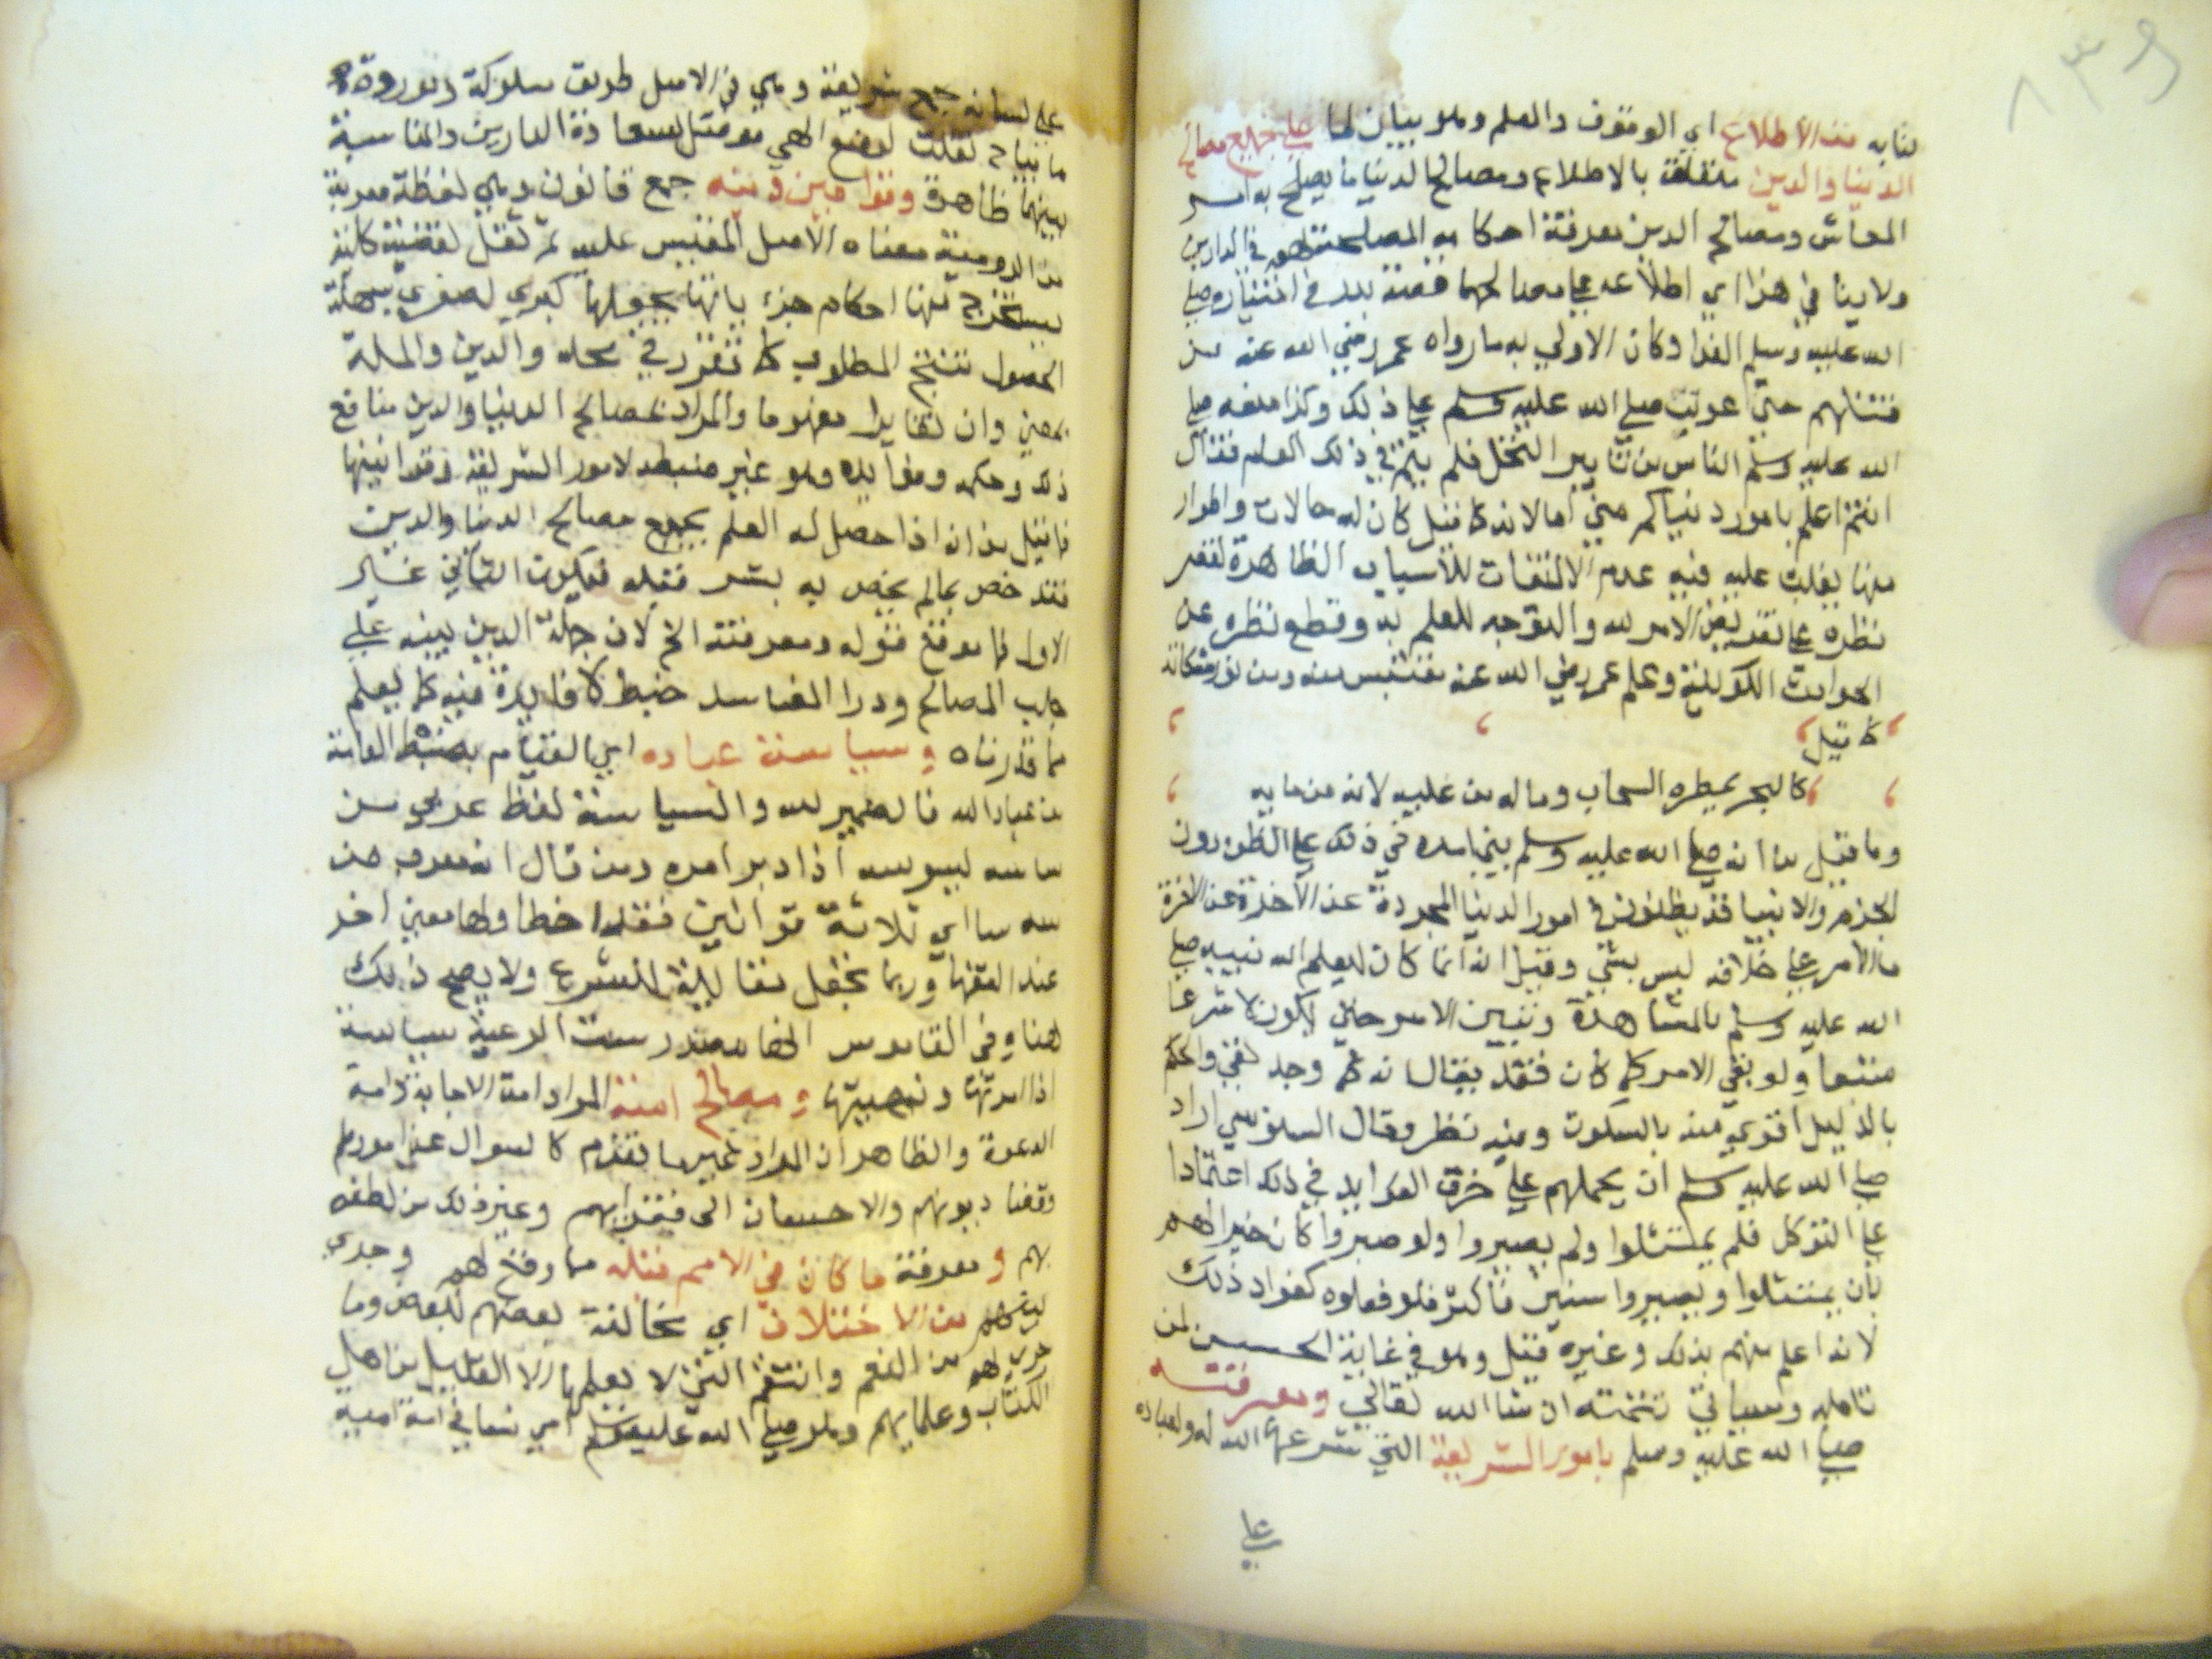 ١٣٩
به من الاطلاع اي الوقوف والعلم وهو بيان لما على جميع مصالح
الدنيا والدين متعلقة بالاطلاع ومصالح الدنيا ما يصلح به امر
المعاش ومصالح الدين معرفة احكامه المصلحة لهم في الدارين
ولا ينافي هذا اي اطلاعه على مصالحهما قصة بدر في اختياره صلى
الله عليه وسلم الفدا وكان الاولى به ما رواه عمر رضي الله عنه من
قتلهم حتى عوتب صلى الله عليه وسلم على ذلك وكذا منعه صلى
الله عليه وسلم الناس من تابير النخل فلم يتم في ذلك العام فقال
انتم اعلم بامور دنياكم مني اما لانه كما قيل كان له حالات واطوار
منها يغلب عليه فيه عدم الالتفات للأسباب الظاهرة لقصر
نظره على تفويض الامر لله والتوجه للعلم به وقطع نظره عن
الحوادث الكونية وعلم عمر رضي الله عنه مقتبس منه ومن نور مشكاته
كما قيل
كالبحر يمطره السحاب وماله من عليه لانه من مايه
وما قيل من انه صلى الله عليه وسلم بنى امره في ذلك على الظن دون
الجزم والانبيا قد يظنون في امور الدنيا المجردة عن الآخرة
ما الامر على خلافه ليس بشي وقيل انه انما كان ليعلم الله نبيه صلى
الله عليه وسلم بالمشاهدة وتبيين الامر حتى يكون شرعا
متبعا ولو بقي الامر كما كان فقد يقال انه لما وجد نفي والحكم
بالدليل اقوى منه بالسكوت وفيه نظر وقال السنوسي اراد
صلى الله عليه وسلم ان يحملهم على خرق العوايد في ذلك اعتمادا
على التوكل فلم يمتثلوا ولم يصبروا ولو صبروا كان خيرا لهم
بأن يمتثلوا ويصبروا سنين فأكثر فلو فعلوه كفوا ذلك
لانه اعلم منهم بذلك وغيره قيل وهو في غاية الحسن لمن
تامله وسياتي تتمته ان شا الله تعالى ومعرفته
صلى الله عليه وسلم بامور الشريعة التي شرعها الله له ولعباده
على
على لسانه جمع شريعة وهي في الاصل طريق سلوكه
ما يباح نقلت لوضع الهي موصل لسعادة الدارين والمناسبة
بينهما ظاهرة وقوانين دينه جمع قانون وهي لفظة معربة
من الرومية معناه الاصل المقيس عليه ثم نقل لقضية كلية
يستخرج منها احكام جزئياتها بجعلها كبرى لصغرى سهلة
الحصول تنتج المطلوب كما تقرر في محله والدين والملة
بمعنى وان تغايرا مفهوما والمراد بمصالح الدنيا والدين منافع
ذلك وحكمه وفوايده وهو غير ضبط لامور الشريعة وقوانينها
فما قيل من انه اذا حصل له العلم بجميع مصالح الدنيا والدين
فقد خص بما لم يخص به بشر قبله فيكون الثاني غير
الاول فما موقع قوله ومعرفته الخ لان جملة الدين بنيه على
جلب المصالح ودرا المفاسد خبط لا فايدة فيه كما يعلم
مما قررناه وسياسة عباده اي القيام بضبط العامة
من عباد الله فالضمير لله والسياسة لفظ عربي من
ساسه يسوسه اذا دبر امره ومن قال انه معرب من
سه سا اي ثلاثة قوانين فقد اخطا ولها معنى اخر
عند الفقها وربما تجعل مقابلة للشرع ولا يصح ذلك
هنا وفي القاموس انها مصدر سست الرعية سياسة
اذا امرتها ونهيتها ومصالح امته المراد امة الاجابة لا امة
الدعوة والظاهر ان المراد غير ما تقدم كالسوال عن امورهم
وقضا ديونهم والاحسان الى فقرايهم وغير ذلك من لطفه
بهم ومعرفة ما كان في الامم قبله مما وقع لهم وجرى
لرسلهم من الاختلاف اي مخالفة بعضهم لبعض وما
جرى لهم من النعم والنقم التي لا يعلمها الا القليل من اهل
الكتاب وعلمايهم وهو صلى الله عليه وسلم امي نشا في امة امية